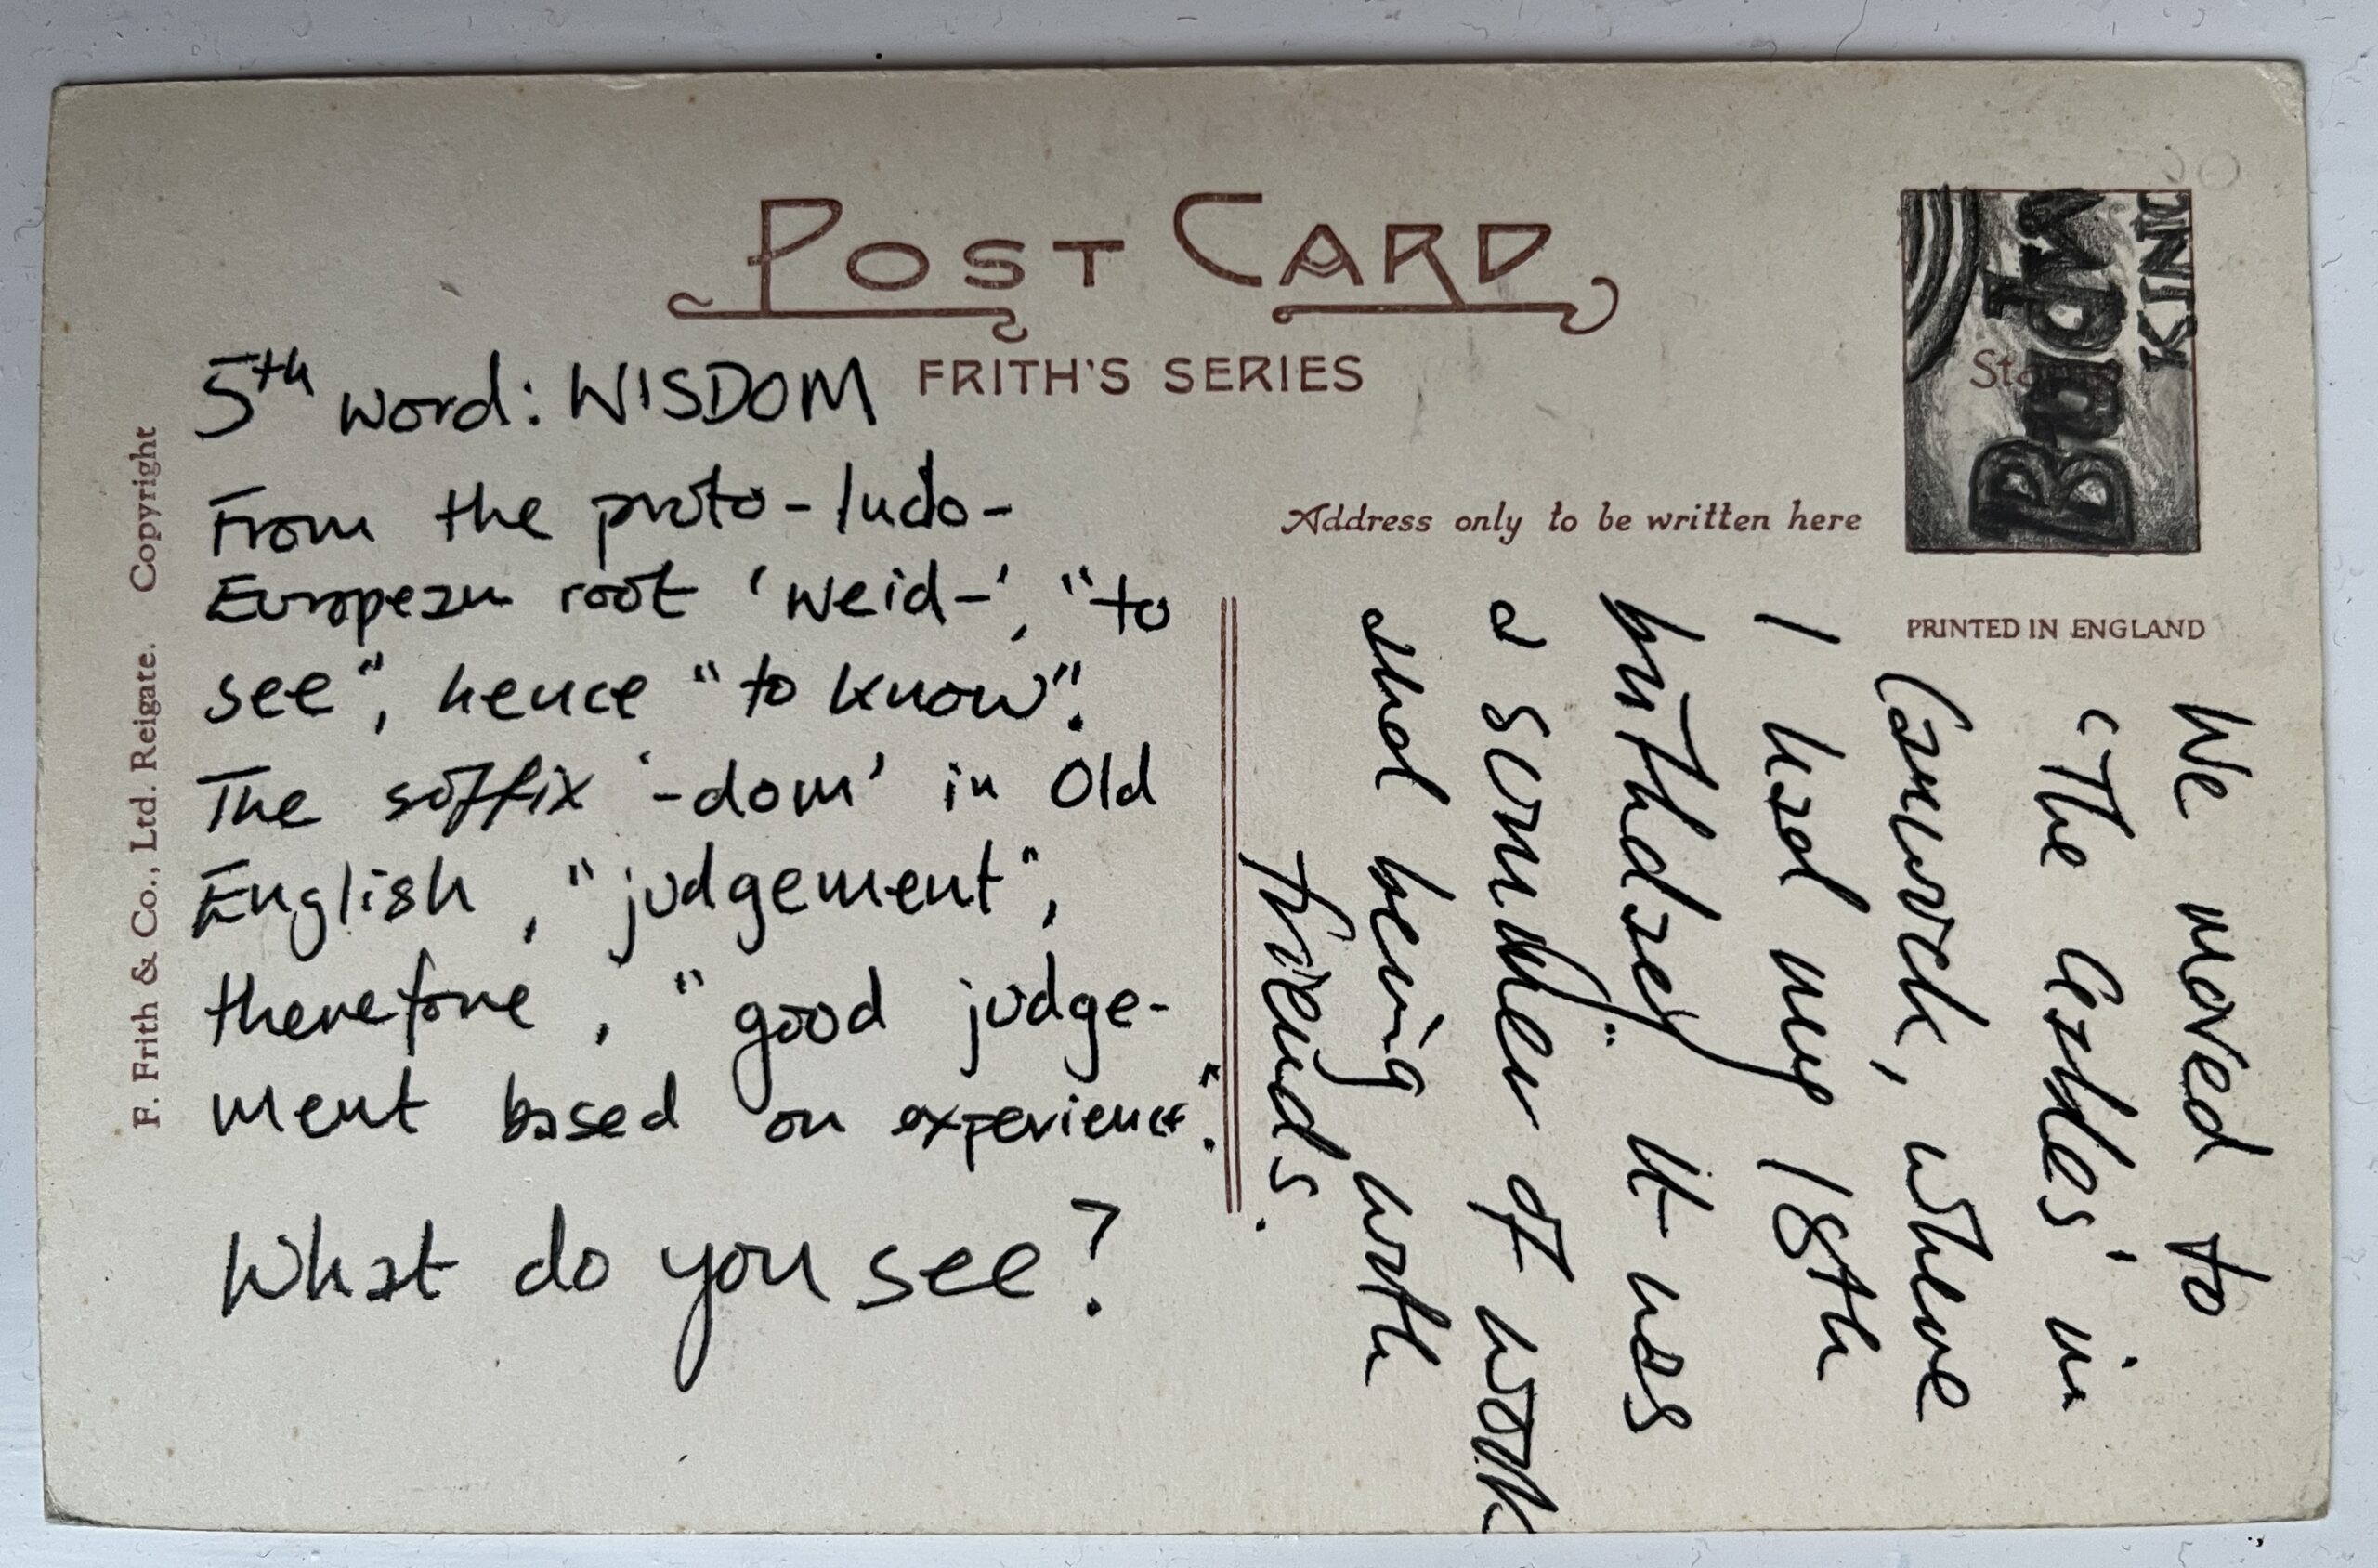 POST CARD
FRITH'S SERIES
5th word: WISDOM
From the proto-Indo-
European root 'weid-', "to
see", hence "to know".
The suffix '-dom' in Old
English, "judgement",
therefore, "good judge-
ment based on experience".
What do you see?
F. Frith & Co., Ltd. Reigate. Copyright
Address only to be written here
PRINTED IN ENGLAND
We moved to
'The in
where
I had my 18th
birthday. It was
a summer of work
and being with
friends.